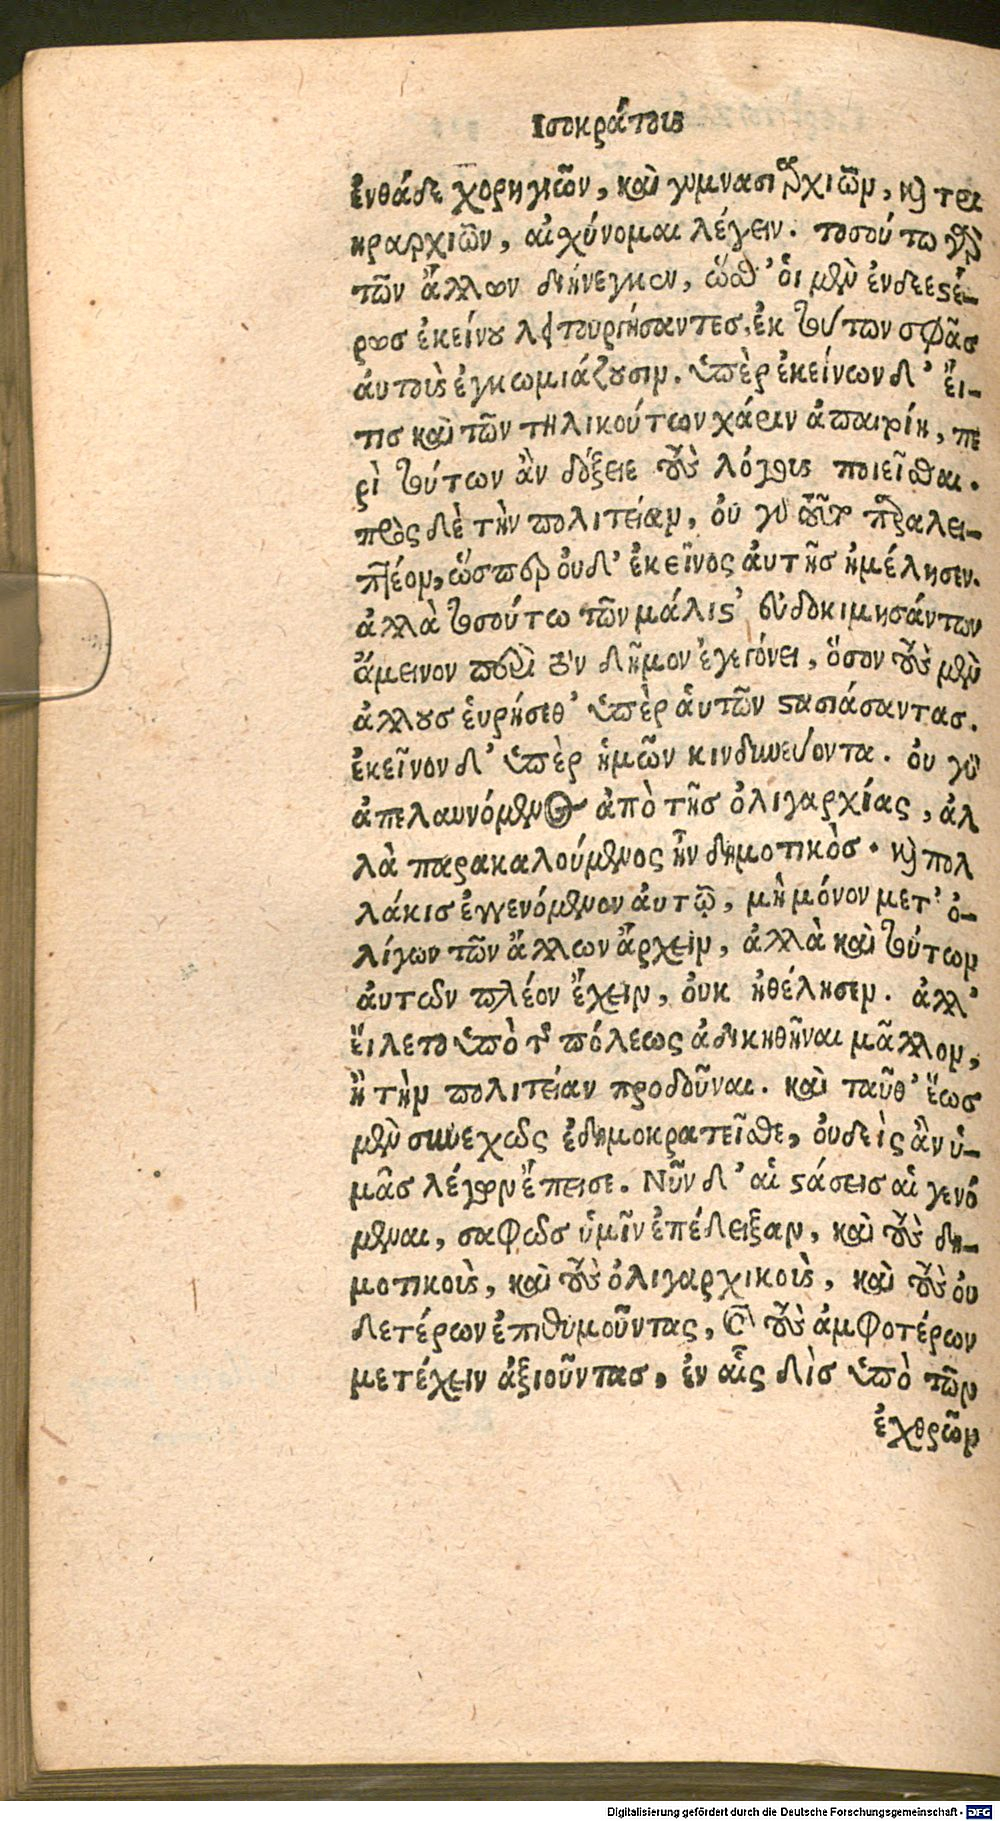 Ισοκράτους
ἐνθάδε χορηγιῶν, καὶ γυμνασιαρχιῶν, καὶ τρι
ηραρχιῶν, αἰχύνομαι λέγειν. τοσούτω γὰρ
τῶν ἄλλων διήνεγκεν, ὥσθ' ὁι μὲν ἐνδεεστέ-
ρως ἐκείνου λειτουργήσαντες, ἐκ τούτων σφᾶς
ἀυτοὺς ἐγκωμιάζουσιν. ὑπὲρ ἐκείνων δ' ἔι-
τις καὶ τῶν τηλικούτων χάριν ἀπαιτοίη, πε
ρὶ τούτων ἂν δόξειε τοὺς λόγους ποιεῖσθαι.
πρὸς δὲ τὴν πολιτείαν, ὀυ γὰρ ταύτην παραλει-
πτέον, ὥσπερ ὀυδ' ἐκεῖνος ἀυτῆς ἠμέλησεν.
ἀλλὰ τοσούτω τῶν μάλιστ' ἐυδοκιμησάντων
ἄμεινον περὶ τὸν δῆμον ἐγεγόνει, ὅσον τοὺς μὲν
ἄλλους ἑυρήσεθ' ὑπὲρ ἁυτῶν στασιάσαντας.
ἐκεῖνον δ' ὑπὲρ ἡμῶν κινδυνεύοντα. ὀυ γὰρ
ἀπελαυνόμενος ἀπὸ τῆς ὀλιγαρχίας, ἀλ
λὰ παρακαλούμενος ἦν δημοτικὸς. καὶ πολ
λάκις ἐγγενόμενον ἀυτῷ, μὴ μόνον μετ' ὀ-
λίγων τῶν ἄλλων ἄρχειν, ἀλλὰ καὶ τούτων
ἀυτῶν πλέον ἔχειν, ὀυκ ἠθέλησεν. ἀλλ'
ἕιλετο ὑπὸ τῆς πόλεως ἀδικηθῆναι μᾶλλον,
ἢ τὴν πολιτείαν προδοῦναι. καὶ ταῦθ' ἕως
μὲν συνεχῶς ἐδημοκρατεῖσθε, ὀυδεὶς ἂν ὑ-
μᾶς λέγων ἔπεισε. Νῦν δ' αἱ στάσεις αἱ γενό
μεναι, σαφῶς ὑμῖν ἐπέδειξαν, καὶ τοὺς δη-
μοτικοὺς, καὶ τοὺς ὀλιγαρχικοὺς, καὶ τοὺς ὀυ
δετέρων ἐπιθυμοῦντας, καὶ τοὺς ἀμφοτέρων
μετέχειν ἀξιοῦντας, ἐν αἷς δὶς ὑπὸ τῶν
ἐχθρῶν
Digitalisierung gefördert durch die Deutsche Forschungsgemeinschaft - DFG